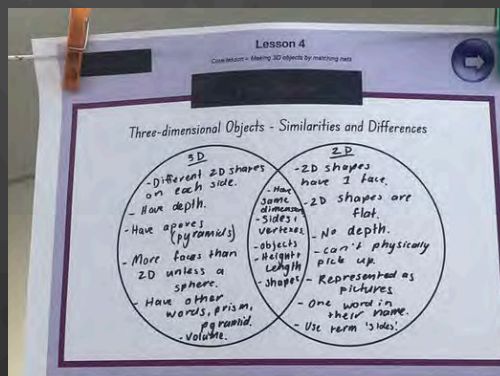 Lesson 4
Core lesson – Making 3D objects by matching nets
Three-dimensional Objects - Similarities and Differences
3D
-Different 2D shapes
on each side.
- Have depth.
- Have apexes
(pyramids)
- More faces than
2D unless a
sphere.
- Have other
words, prism,
pyramid.
-Volume.
- Have
same
dimension
-Sides,
vertexes
-objects
-Height &
Length
-shapes
2D
-2D shapes
have 1 face.
-2D shapes are
flat.
- No depth.
-can't physically
pick up.
- Represented as
pictures
- One word in
their name.
- Use term 'sides'.